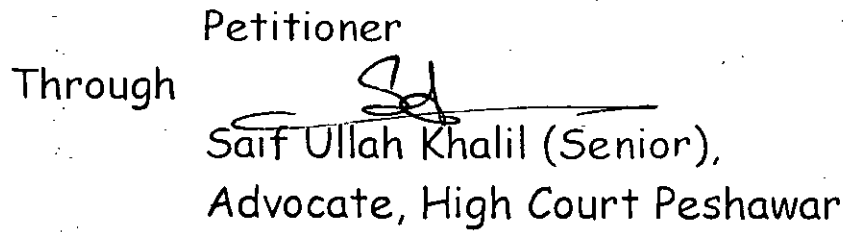 Petitioner
Through
Saif Ullah Khalil (Senior),
Advocate, High Court Peshawar